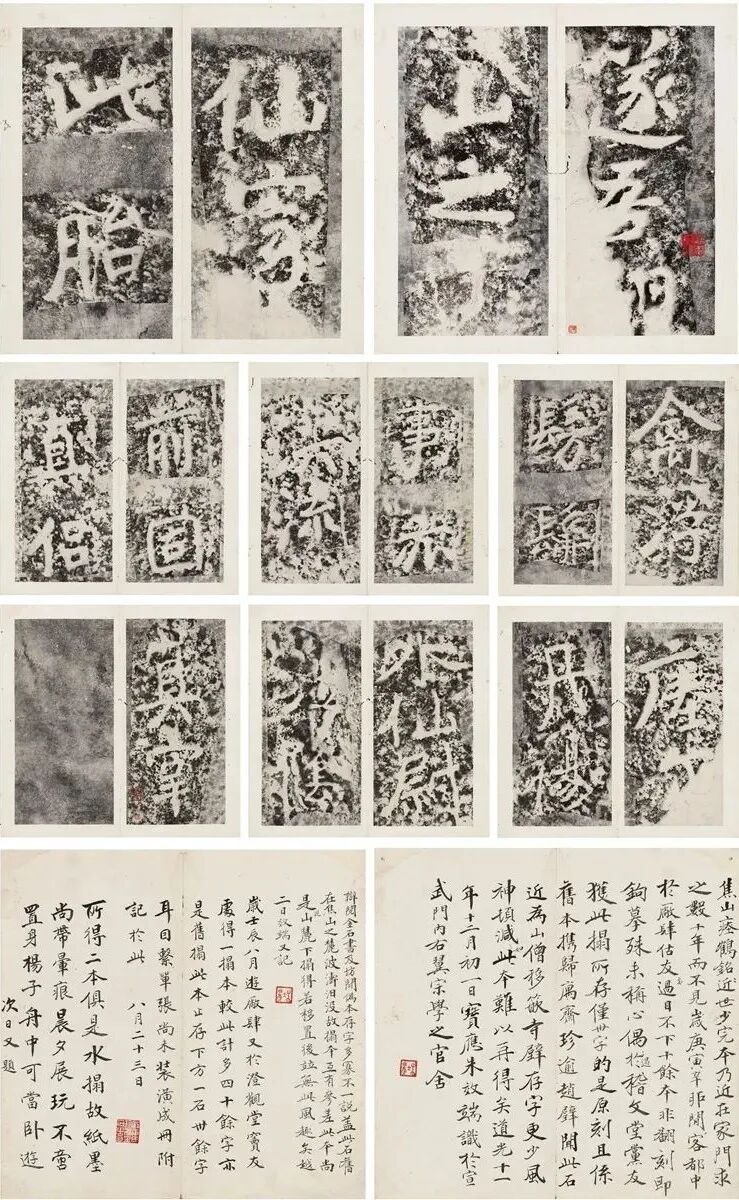 遂吾
山之下
仙家
此胎
禽浮
事亦
洪流
前固
真侶
唐
丹楊
外仙尉
江陰
真宰
焦山瘞鶴銘近世少完本乃近在家門求
之數十年而不見歲庚寅辛卯間客都中
於廠肆估友過目不下十餘本非翻刻即
鉤摹殊未稱心偶過於稽文堂黨友
獲此搨所存僅卅字的是原刻且係
舊本攜歸寓齋珍逾趙璧聞此石
近為山僧移嵌寺壁存字更少風
神頓減此本難以再得矣道光十一
年十二月初一日寶應朱端識於宣
武門內右翼宗學之官舍
聯閱金石書及坊間偽本存字多寡不一說蓋此石舊
在焦山之麓波濤汨沒故搨本互有參差此本尚
是山麓下搨得若移置後並無此風趣矣越
二日端又記
歲壬辰八月遊廠肆又於澄觀堂賓友
處得一搨本較此計多四十餘字亦
是舊搨此本止存下方一石卅餘字
耳因繫單張尚未裝潢成冊附
記於此 八月二十三日
所得二本俱是水搨故紙墨
尚帶暈痕晨夕展玩不啻
置身楊子舟中可當臥遊
次日又題